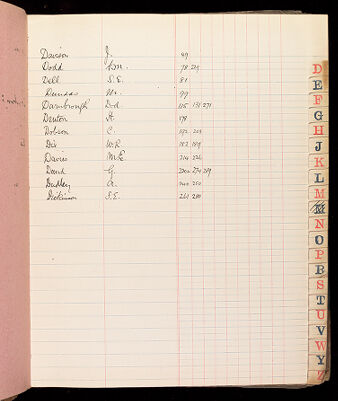 Davison J. 49
Dodd Wm. 78
Dell S.E. 81
Duncas Wm. 99
Darnbrough D.d. 115 131 271
Denton H. 178
Dobson C. 192
Dix W.R. 182 189
Davies M.E. 214 226
Daund G.
Dudley A. 240 250
Dickinson S.E. 260
D
E
F
G
H
J
K
L
M
N
O
P
R
S
T
U
V
W
Y
Z